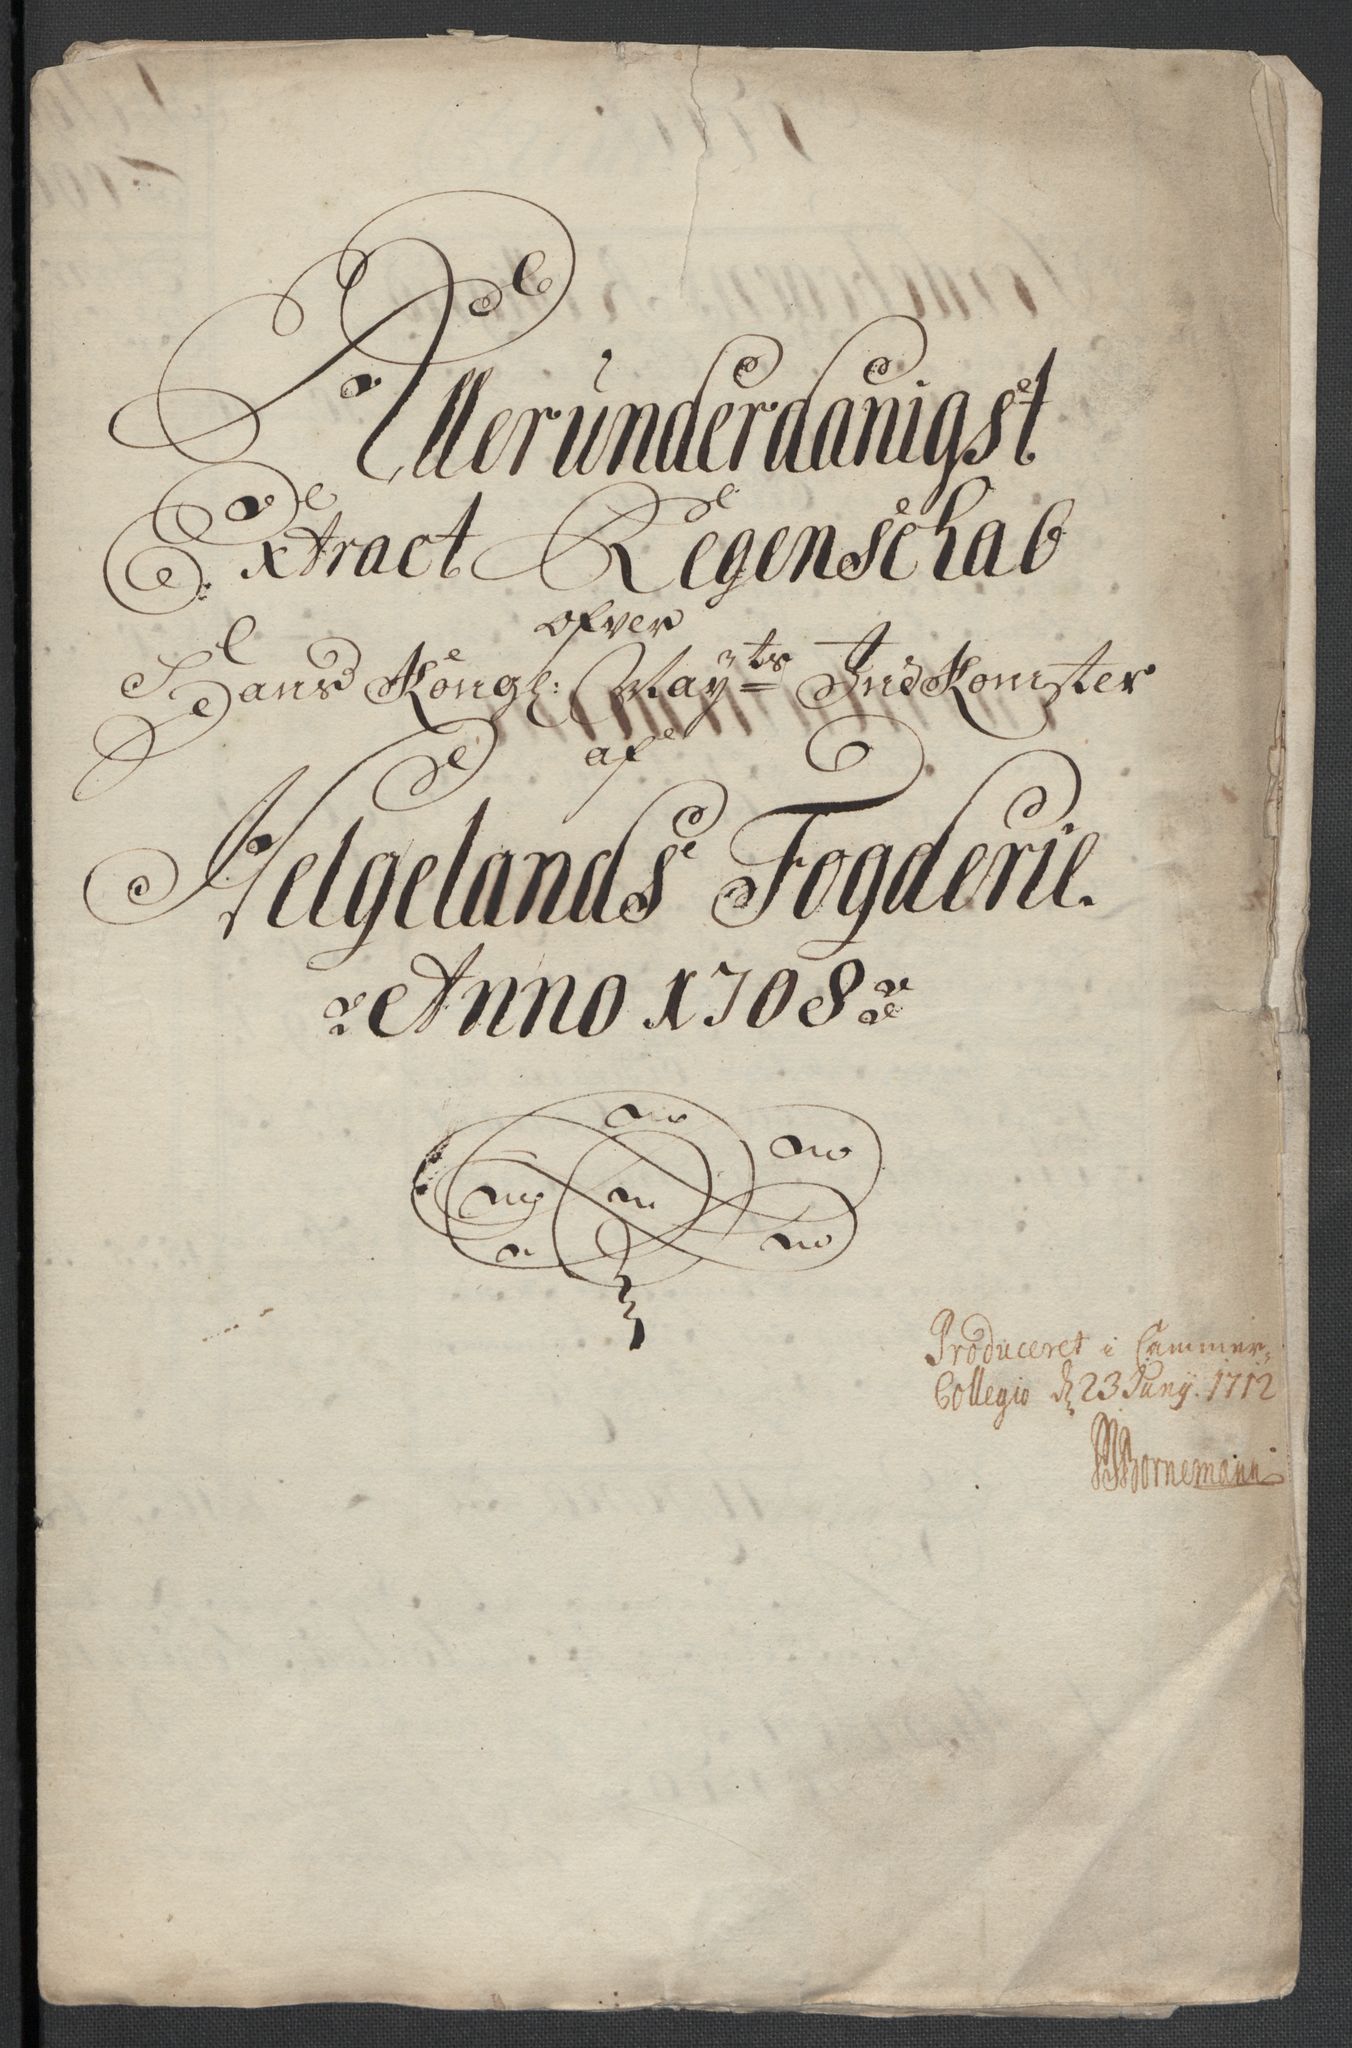 Allerunderdanigst
Extract Regenschab
ofver
Hans Kongl: Mayts Indkomster
af
Helgelands Fogderie.
Anno 1708
Produceret i Cammer-
Collegio d 23 Juny 1712
Bornemann